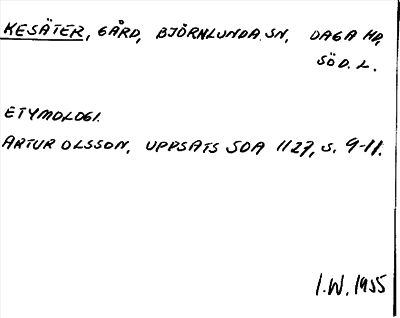 KESÄTER, GÅRD, BJÖRNLUNDA SN, DAGA HD,
SÖD. L.
ETYMOLOGI.
ARTUR OLSSON, UPPSATS SOA 1127, S. 9-11.
I.W. 1955